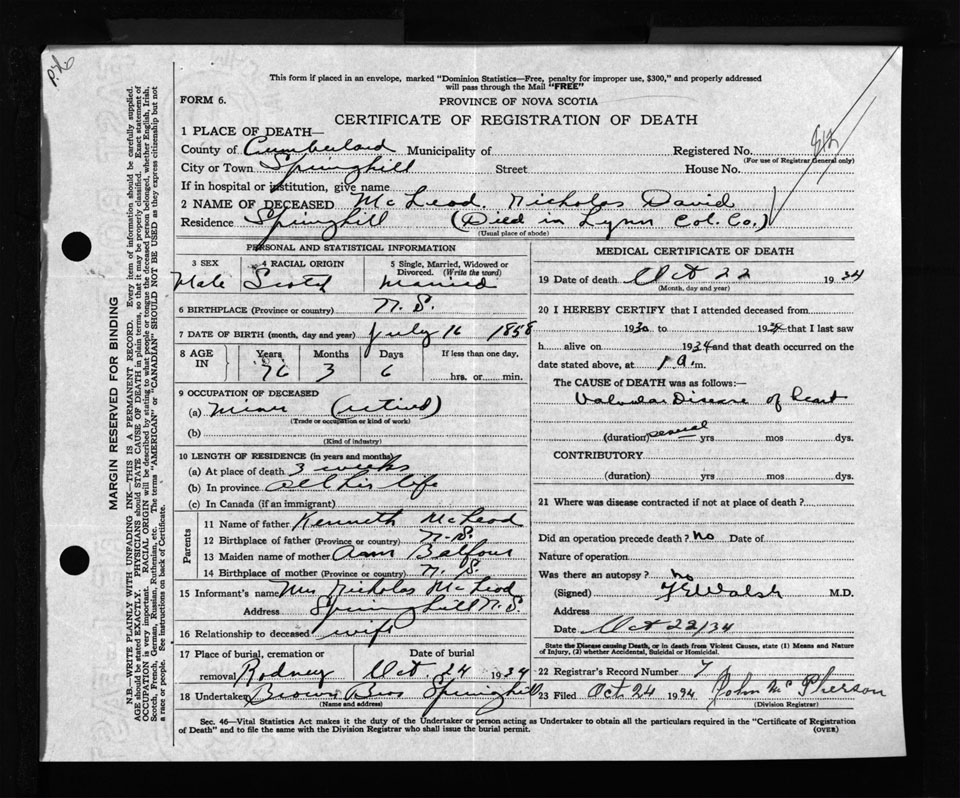 This form if placed in an envelope, marked "Dominion Statistics—Free, penalty for improper use, $300," and properly addressed
will pass through the Mail "FREE"
FORM 6.
PROVINCE OF NOVA SCOTIA
CERTIFICATE OF REGISTRATION OF DEATH
1 PLACE OF DEATH—
County of Cumberland Municipality of Registered No.
(For use of Registrar General only)
City or Town Springhill Street House No.
If in hospital or institution, give name
2 NAME OF DECEASED McLeod. Nicholas David
Residence Springhill (Died in Lynn Col. Co.)
(Usual place of abode)
PERSONAL AND STATISTICAL INFORMATION
3 SEX 4 RACIAL ORIGIN 5 Single, Married, Widowed or Divorced. (Write the word)
Male Scotch Married
6 BIRTHPLACE (Province or country) N. S.
7 DATE OF BIRTH (month, day and year) July 16 1858
8 AGE IN Years Months Days If less than one day.
76 3 6 hrs. or min.
9 OCCUPATION OF DECEASED
(a) Miner (retired)
(Trade or occupation or kind of work)
(b)
(Kind of industry)
10 LENGTH OF RESIDENCE (in years and months)
(a) At place of death 3 weeks
(b) In province all his life
(c) In Canada (if an immigrant)
Parents
11 Name of father Kenneth McLeod
12 Birthplace of father (Province or country) N.S.
13 Maiden name of mother Ann Balfour
14 Birthplace of mother (Province or country) N. S.
15 Informant's name Mrs Nicholas McLeod
Address Springhill N.S.
16 Relationship to deceased wife
17 Place of burial, cremation or Date of burial
removal Rodney Oct. 24 1934
18 Undertaker Brown Bros Springhill
(Name and address)
MEDICAL CERTIFICATE OF DEATH
19 Date of death Oct 22 1934
(Month, day and year)
20 I HEREBY CERTIFY that I attended deceased from
1930 to 1934 that I last saw
h alive on 1934 and that death occurred on the
date stated above, at 1 A. m.
The CAUSE of DEATH was as follows:—
Valvular Disease of heart
(duration) several yrs mos dys.
CONTRIBUTORY
(duration) yrs mos dys.
21 Where was disease contracted if not at place of death?
Did an operation precede death? No Date of
Nature of operation
Was there an autopsy? no
(Signed) F E Walsh M.D.
Address
Date Oct 22/34
State the Disease causing Death, or in death from Violent Causes, state (1) Means and Nature
of Injury, (2) whether Accidental, Suicidal or Homicidal.
22 Registrar's Record Number 7
23 Filed Oct 24 1934 John McPherson
(Division Registrar)
Sec. 46—Vital Statistics Act makes it the duty of the Undertaker or person acting as Undertaker to obtain all the particulars required in the "Certificate of Registration
of Death" and to file the same with the Division Registrar who shall issue the burial permit.
(OVER)
MARGIN RESERVED FOR BINDING
N.B.—WRITE PLAINLY WITH UNFADING INK—THIS IS A PERMANENT RECORD. Every item of information should be carefully supplied.
AGE should be stated EXACTLY. PHYSICIANS should STATE CAUSE OF DEATH in plain terms, so that it may be properly classified. Exact statement of
OCCUPATION is very important. RACIAL ORIGIN will be described by stating to what people or tongue the deceased person belonged, whether English, Irish,
Scotch, French, German, Russian, Ruthenian, etc. The terms "AMERICAN" or "CANADIAN" SHOULD NOT BE USED as they express citizenship but not
a race or people. See instructions on back of Certificate.